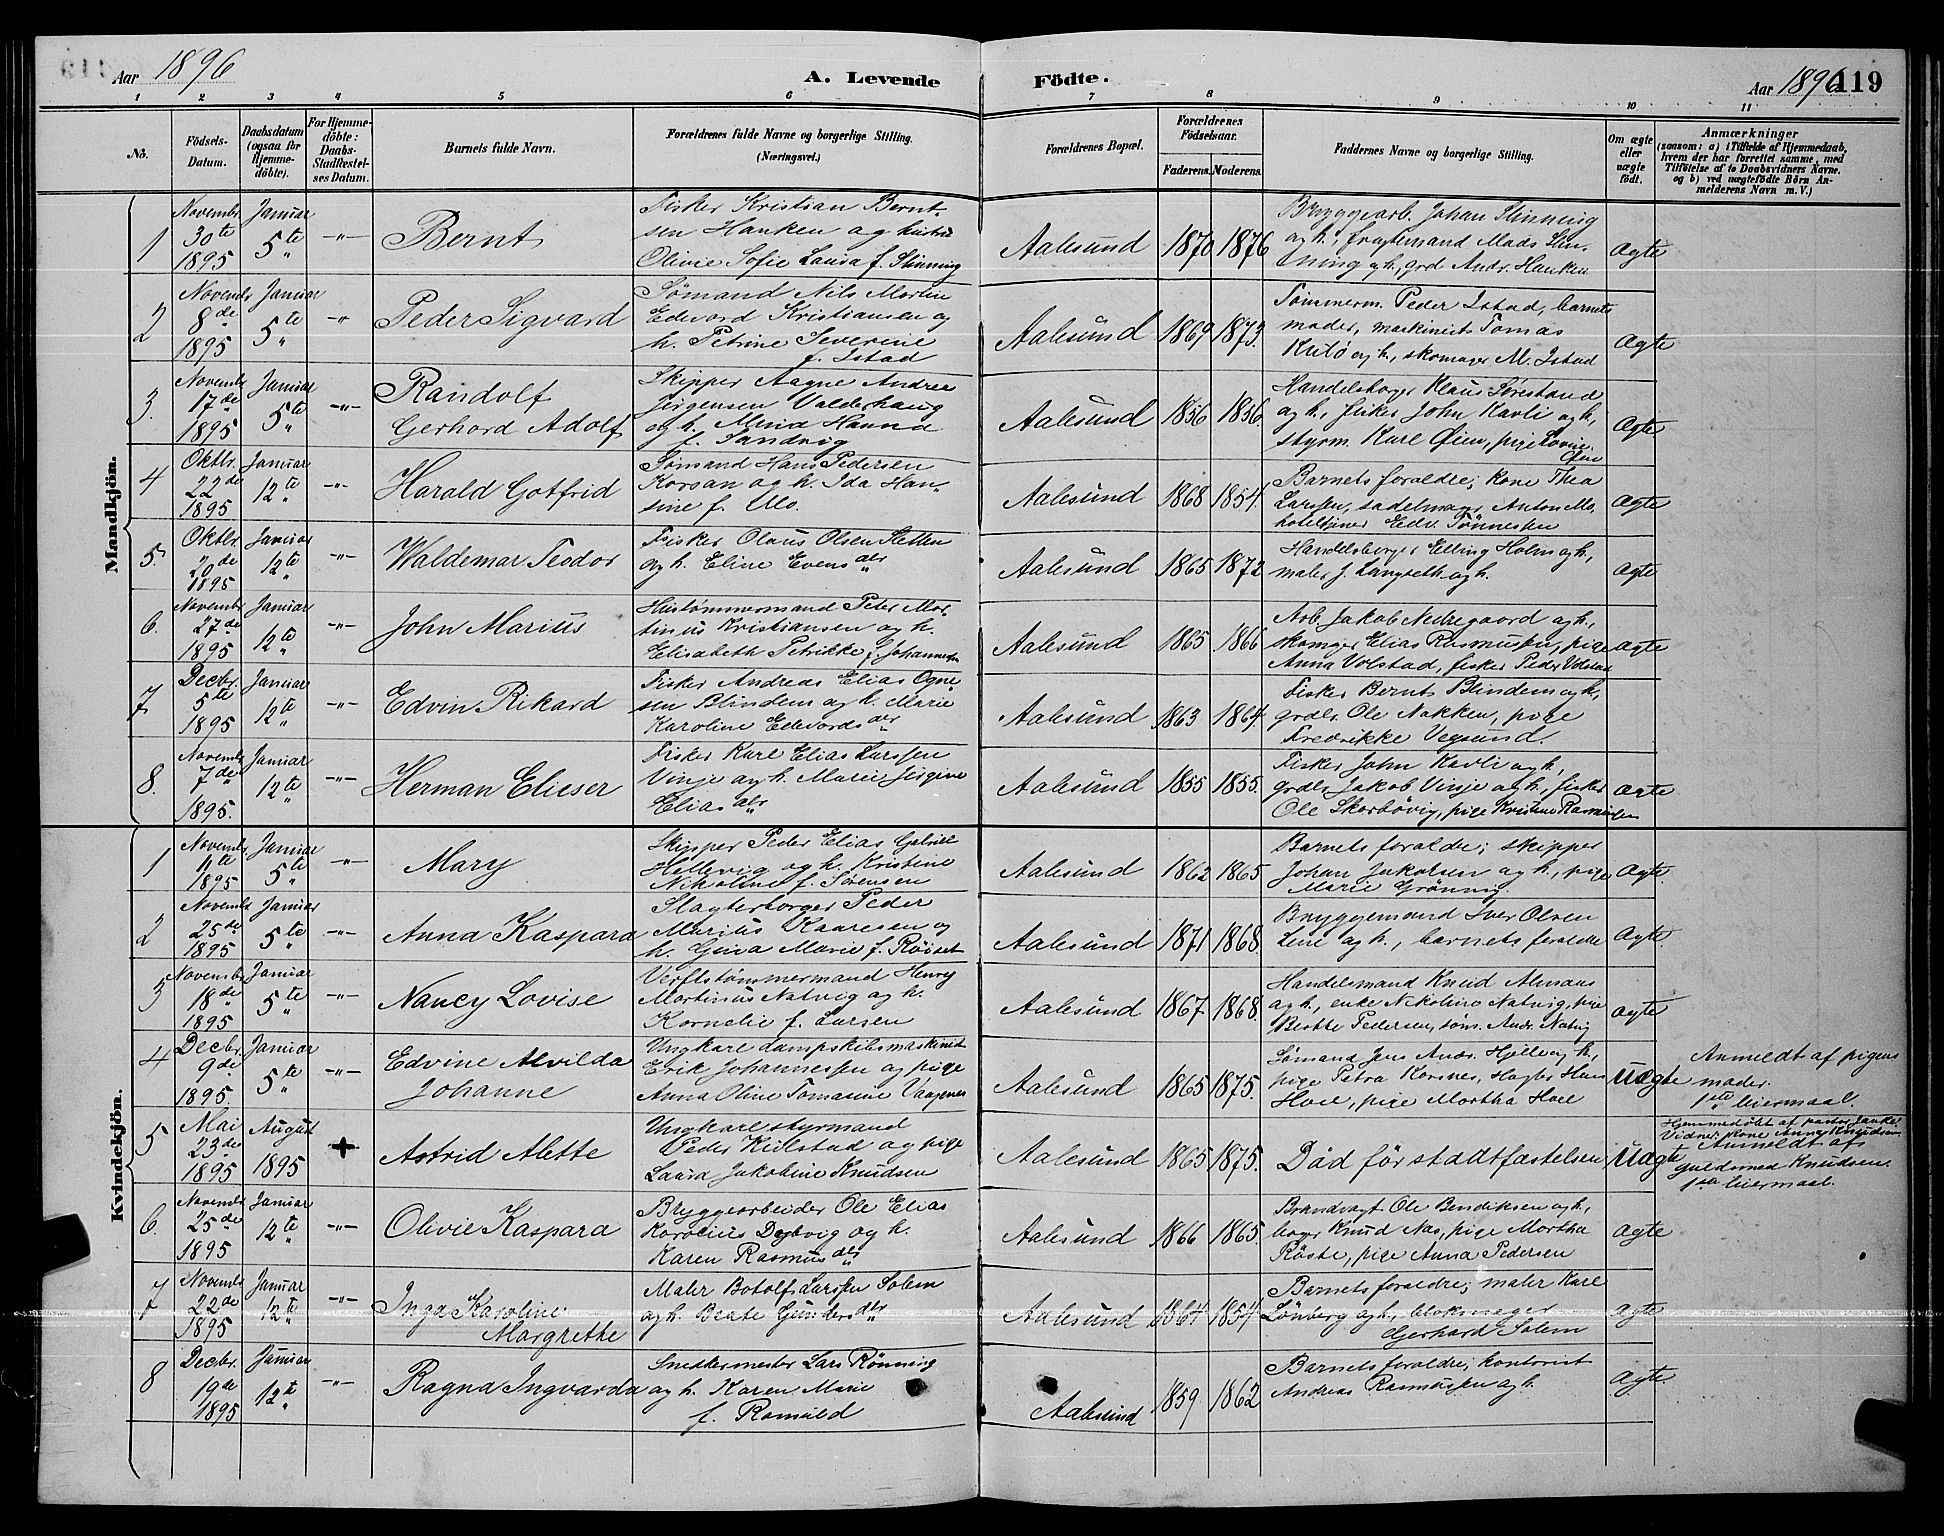 Aar 1896
A. Levende
Födte.
Aar 1896
119
1 2 3 4 5 6 7 8 9 10 11
No.
Födsels-
Datum.
Daabsdatum
(ogsaa for
Hjemme-
döbte).
For Hjemme-
döbte:
Daabs-
Stadfæstel-
ses Datum.
Barnets fulde Navn.
Forældrenes fulde Navne og borgerlige Stilling.
(Næringsvei.)
Forældrenes Bopæl.
Forældrenes
Födselsaar.
Faderens. Moderens.
Faddernes Navne og borgerlige Stilling.
Om ægte
eller
uægte
födt.
Anmærkninger
(saasom: a) i Tilfælde af Hjemmedaab,
hvem der har forrettet samme, med
Tilföielse af to Daabsvidners Navne.
og b) ved uægtefödte Börn An-
melderens Navn m. V.)
Mandkjön.
1
Novembr
30te
1895
Januar
5te
Bernt
Fisker Kristian Bernt-
sen Hanken og hustru
Olivie Sofie Laura f. Slinning
Aalesund
1870 1876
Bryggearb. Johan Slinning
og h., fragtemand Mads Slin-
ning og h., grd Andr. Hanken
Ægte
2
Novembr
8de
1895
Januar
5te
Peder Sigvard
Sømand Nils Martin
Edvard Kristiansen og
h. Petrine Severine
f. Istad
Aalesund
1869 1873.
Tømmerm. Peder Istad, barnets
moder, maskinist Tomas
og h., skomager M. Istad
Ægte
3.
Novembr
17de
1895
Januar
5te
Randolf
Gerhard Adolf
Skipper Aagne Andreas
Jørgensen Valderhaug
og h. Hanna
f. Sandvig
Aalesund
1856 1856
Handelsborger Klaus Sørestrand
og h., fisker John Kavli og h.,
styrm. Karl Øien, pige Lovise
Øien
Ægte
4
Oktbr.
22de
1895
Januar
12te
Harald Gotfrid
Sømand Hans Pedersen
Korsan og h. Ida Han-
sine f. Mo.
Aalesund
1868 1854.
Barnets forældre; kone Thea
Larssen, sadelmager Anton Mo,
hoteltjener Edv. Tønnessen
Ægte
5.
Oktbr.
20de
1895
Januar
12te
Waldemar Teodor
Fisker Olaus Olsen Sletten
og h. Eline Evensdtr
Aalesund
1865 1872
Handelsborger Elling Holm og h.,
maler J. Langseth og h.
Ægte
6.
Novembr
27de
1895
Januar
12te
John Marius
Hustømmermand Peter Mar-
tinius Kristiansen og h.
Elisabeth Petrikke f. Johannessen
Aalesund
1865 1866
Arb. Jakob Nedregaard og h.,
skomager Elias Rasmussen, pige
Anna Volstad, fisker Peder Volstad
Ægte
7
Decbr.
5te
1895
Januar
12te
Edvin Rikard
Fisker Andreas Elias Ogne-
sen Blindem og h. Marie
Karoline Edvardsdtr
Aalesund
1863 1864.
Fisker Bernt Blindem og h.,
grdbr. Ole Nakken, pige
Fredrikke Vegsund.
Ægte
8.
Novembr
7de
1895.
Januar
12te
Herman Elieser
Fisker Karl Elias Larssen
Vinje og h. Marie Jørgine
Eliasdtr
Aalesund
1855 1855.
Fisker John Kavli og h.,
grdbr. Jakob Vinje og h., fisker
Ole Skorbøvig, pige Kristine Rasmussen
Ægte
Kvindekjön.
1
Novembr
11te
1895
Januar
5te
Mary
Skipper Peder Elias Gabriel
Hellevig og h. Kristine
Nikoline f. Sørensen
Aalesund
1862 1865
Barnets forældre; skipper
Johan Jakobsen og h., pige
Marie Grønning
Ægte.
2
Novembr
25de
1895
Januar
5te
Anna Kaspara
Slagterborger Peder
Marius Kaaresen og
h. Gina Marie f. Røiset
Aalesund
1871 1868.
Bryggemand Iver Olsen
Leine og h., barnets forældre
Ægte.
3
Novembr
18de
1895
Januar
5te
Nancy Lovise
Verftstømmermand Henry
Martinius Natvig og h.
Kornelie f. Larsen
Aalesund
1867 1868.
Handelsmand Knud Alenaas
og h., enke Nikoline Natvig, pige
Berthe Pedersen, tøm. Andr. Natvig
Ægte
4
Decbr.
9de
1895.
Januar
5te
Edvine Alvilda
Johanne
Ungkarl dampskibsmaskinist
Erik Johannessen og pige
Anna Oline Tomasine Vaagenes
Aalesund
1865 1875.
Sømand Jens Andr. Hjelle og h.,
pige Petra Korsnes, Hans
Hoel, pige Martha Hoel
Uægte
Anmeldt af pigens
moder.
1ste leiermaal.
5
Mai
23de
1895
August
1895
+
Astrid Alette
Ungkarl styrmand
Peder Kielstad og pige
Laura Jakobine Knudsen
Aalesund
1865 1875.
Død før stadfæstelsen
Uægte
Hjemmedøbt af pastor Janke.
Vidner: kone Anna Knudsen
Anmeldt af
guldsmed Knudsen.
1ste leiermaal.
6.
Novembr
25de
1895
Januar
12te
Olivie Kaspara
Bryggearbeider Ole Elias
Karolius Døbvig og h.
Karen Rasmusdtr
Aalesund
1866 1865.
Brandvagt Ole Bendiksen og h.,
borger Knud Nas, pige Martha
Røste, pige Anna Pedersen
Ægte
7
Novembr
22de
1895
Januar
12te
Inga Karoline
Margrethe
Maler Botolf Larssen Solem
og h. Beate Gundersdtr
Aalesund
1864 1854
Barnets forældre; maler Karl
Lønberg og h., blokmager
Gerhard Solem
Ægte
8
Decbr.
19de
1895
Januar
12te
Ragna Ingvarda
Snedkermester Lars Rønning
og h. Karen Marie
f. Romuld
Aalesund
1859 1862
Barnets forældre, kontorist
Andreas Rasmussen og h.
Ægte.